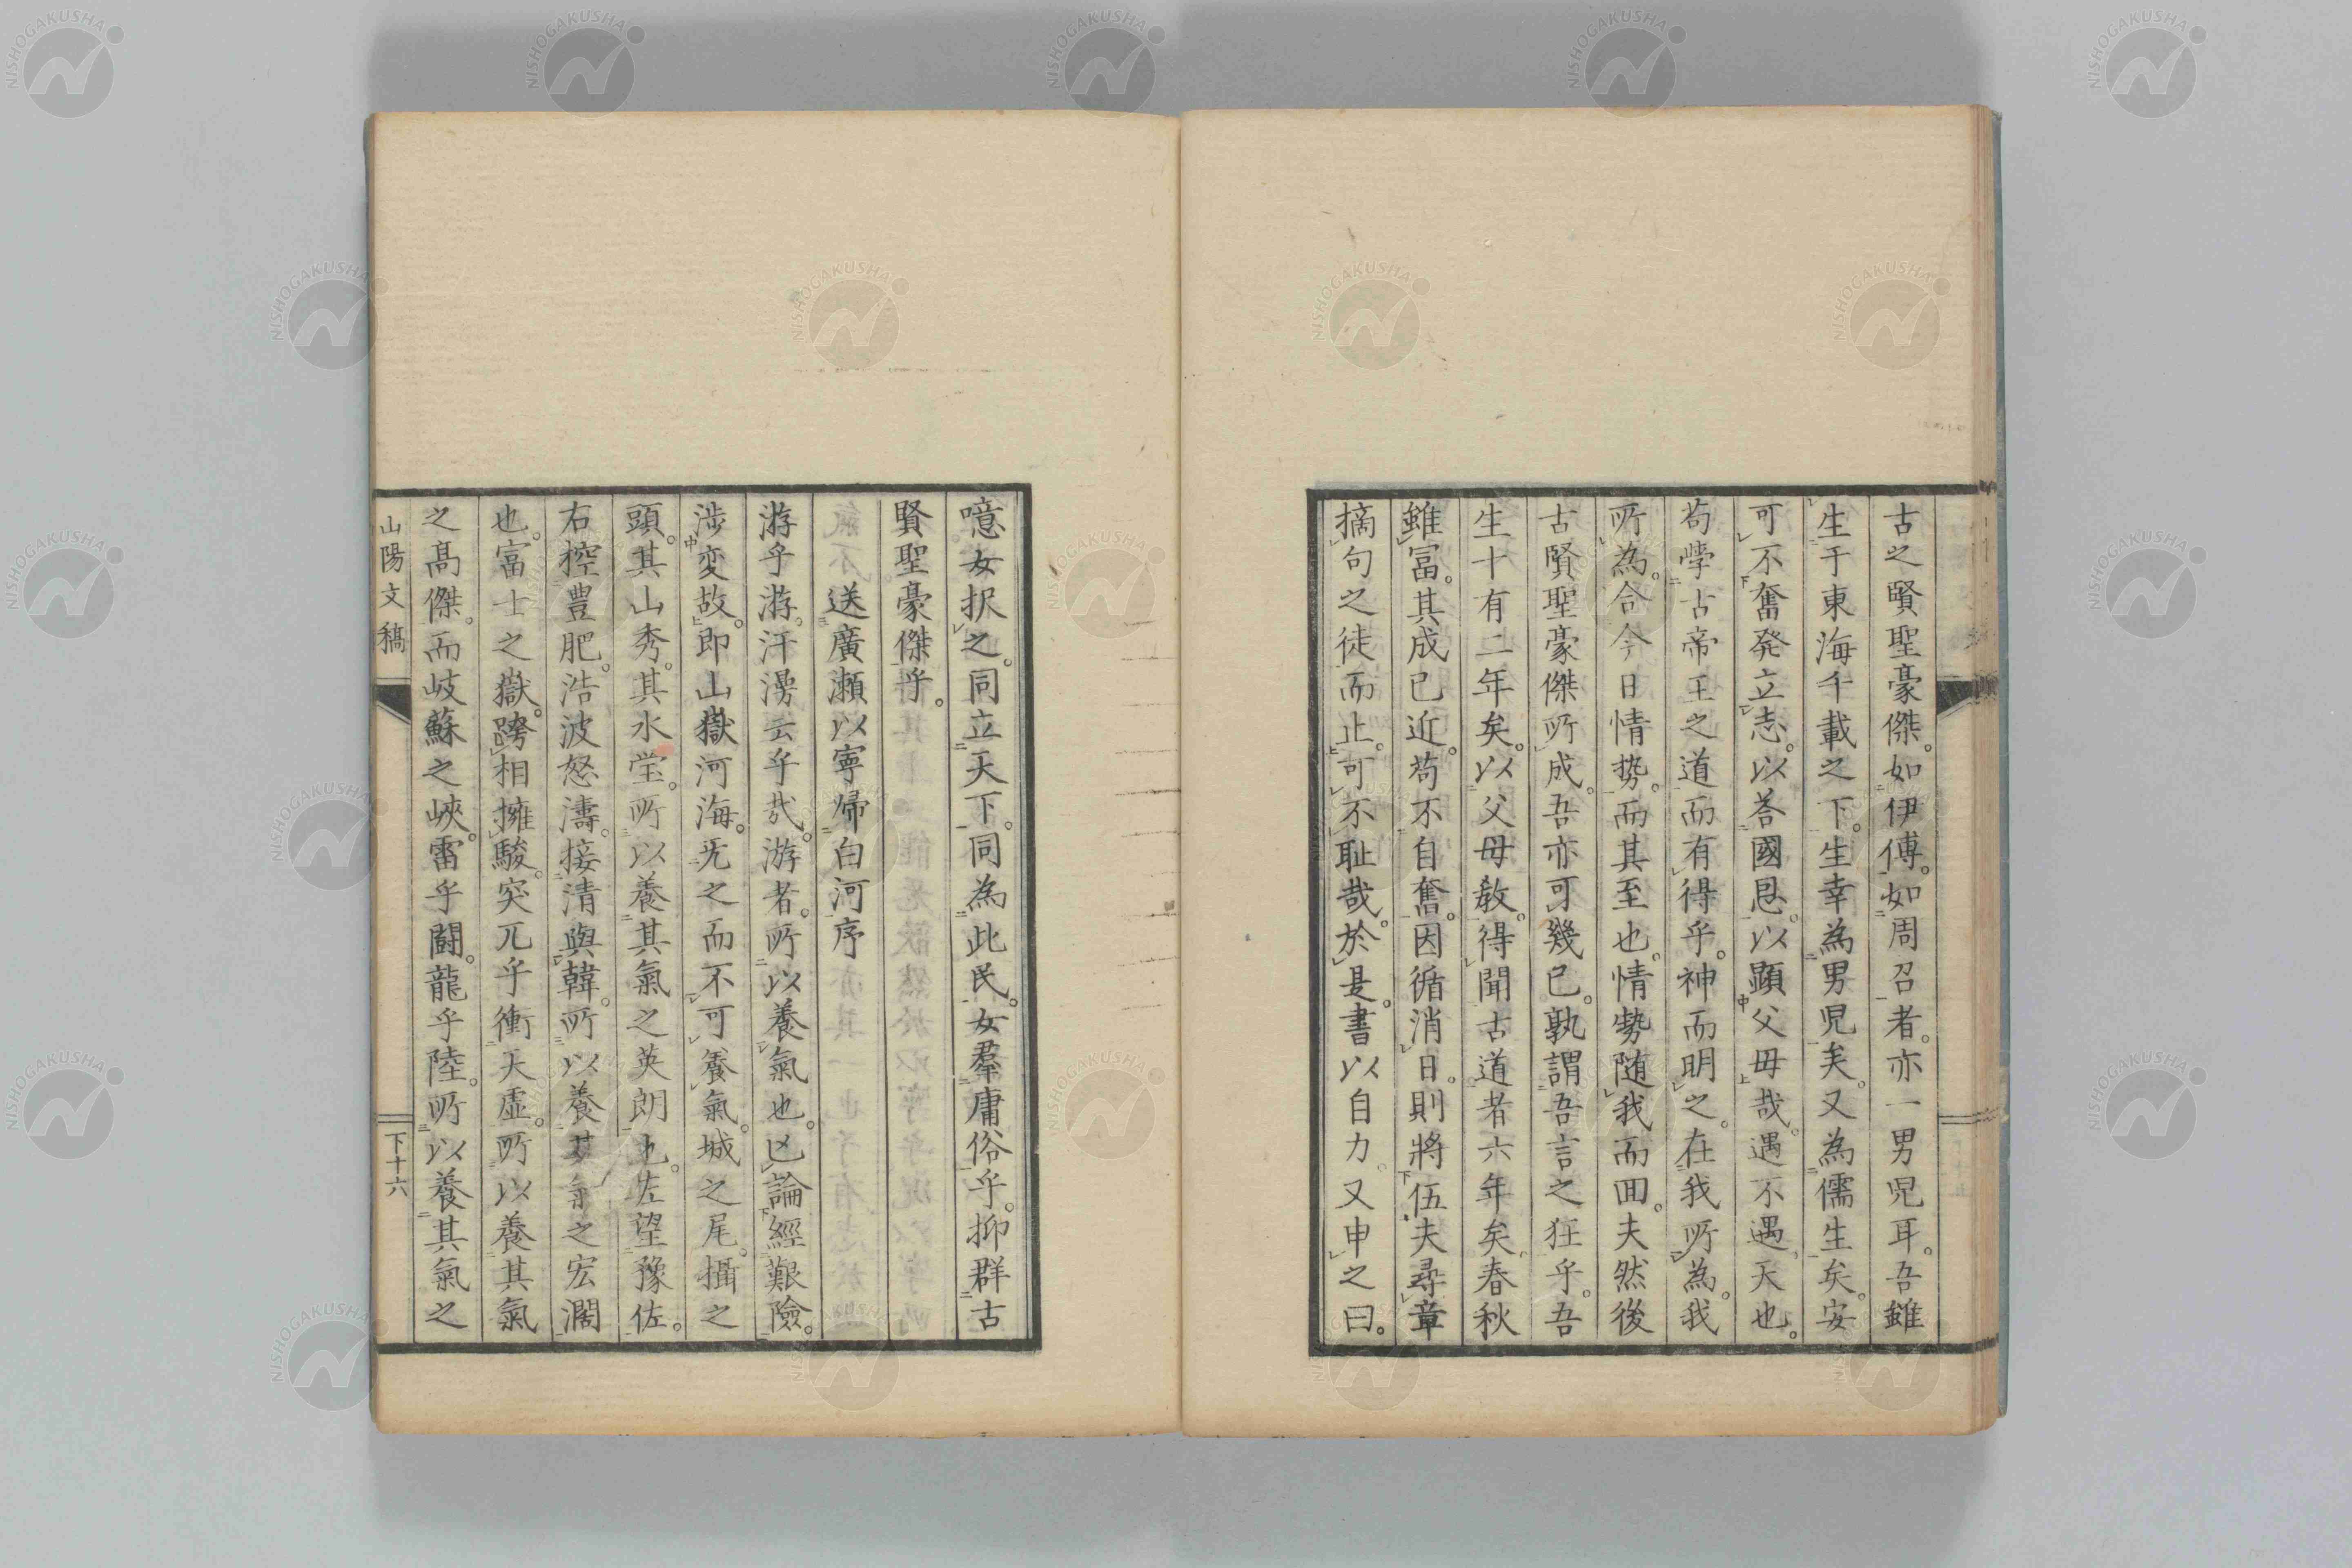 古之賢聖豪傑。如伊傅。如周召者。亦一男児耳。吾雖
生于東海千載之下。生幸為男児矣。又為儒生矣。安
可不奮発立志。以荅國恩。以顕父母哉。遇不遇。天也。
苟學古帝王之道而有得乎。神而明之。在我所為。我
所為。合今日情势。而其至也。情勢随我而囬。夫然後
古賢聖豪傑所成。吾亦可幾已。孰謂吾言之狂乎。吾
生十有二年矣。以父母教。得聞古道者六年矣。春秋
雖富。其成已近。苟不自奮。因循消日。則將伍夫尋章
摘句之徒而止。可不耻哉。於是。書以自力。又申之曰。
噫女択之。同立天下。同為此民。女羣庸俗乎。抑群古
賢聖豪傑乎。
送廣瀬以寧帰白河序
游乎游。汗漫云乎哉。游者。所以養氣也。凶論經艱險。
渉変故。即山嶽河海。旡之而不可養氣。城之尾。攝之
頭。其山秀。其水瑩。所以養其氣之英朗也。左望豫佐。
右控豊肥。浩波怒濤。接清與韓。所以養其氣之宏濶
也。富士之嶽。跨相擁駿。突兀乎衝天虚。所以養其氣
之高傑。而岐蘇之峽。雷乎闘。龍乎陸。所以養其氣之
山陽文稿
下十六
NISHOGAKUSHA